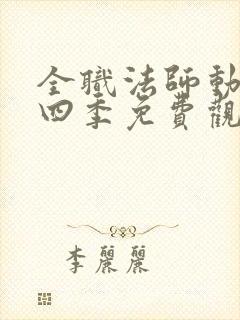 全職法師動
四季免費觀
李麗麗